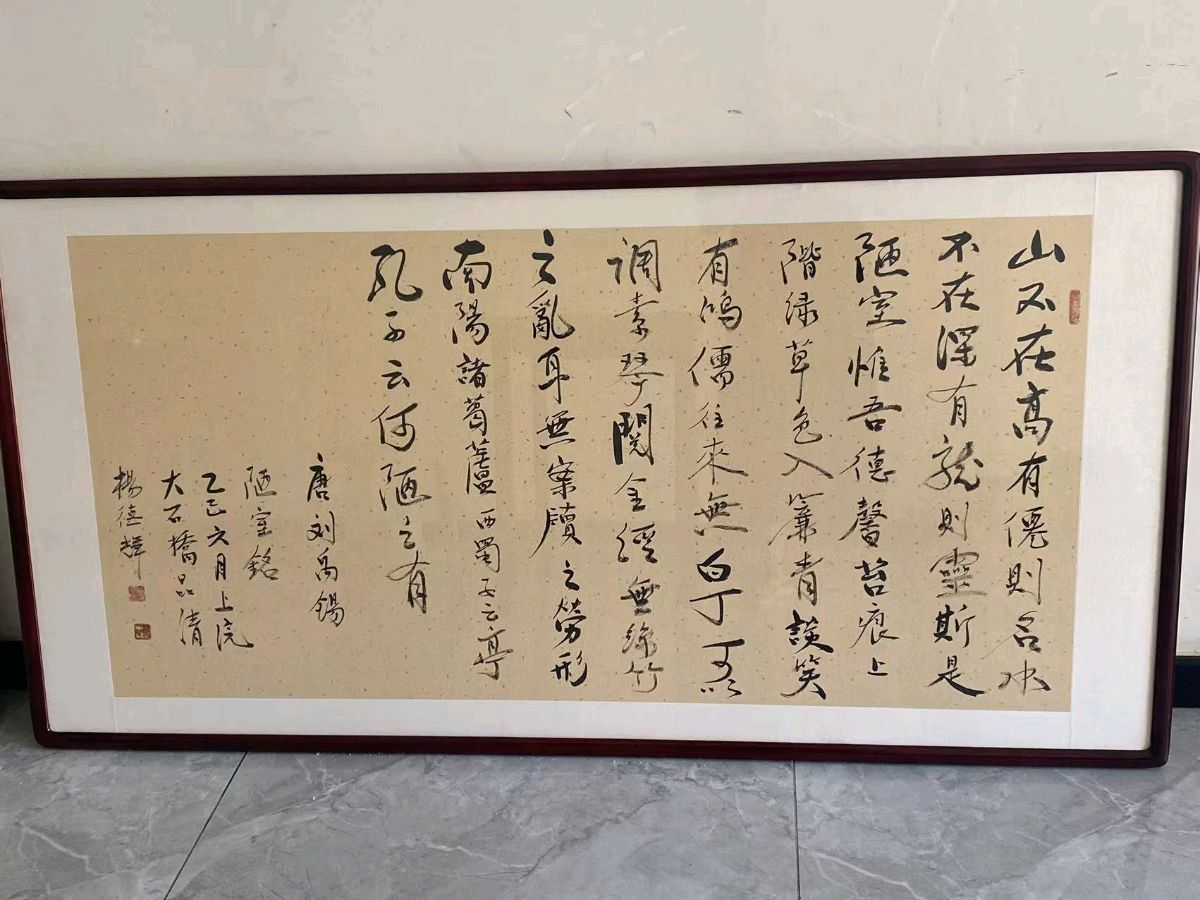 山不在高有僊則名水
不在深有龍則靈斯是
陋室惟吾德馨苔痕上
階绿草色入簾青談笑
有鸿儒往來無白丁可以
调素琴閱金經無絲竹
之亂耳無案牘之勞形
南陽諸葛蘆西蜀子云亭
孔子云何陋之有
唐刘禹錫
陋室銘
乙巳六月上浣
大石橋品清
楊德輝